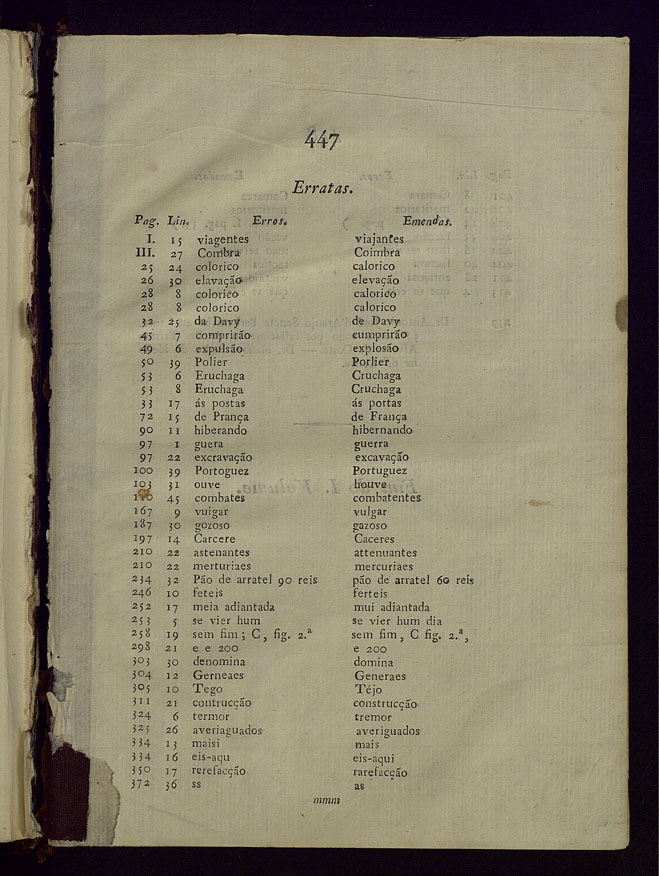 447
Erratas.
Pag. Lin. Erros. Emendas.
I. 15 viagentes viajantes
III. 27 Combra Coimbra
25 24 colorico calorico
26 30 elavação elevação
28 8 colorico calorico
28 8 colorico calorico
32 25 da Davy de Davy
45 7 comprirão cumprirão
49 6 expulsão explosão
50 39 Polier Porlier
53 6 Eruchaga Cruchaga
53 8 Eruchaga Cruchaga
33 17 ás postas ás portas
72 15 de Prança de França
90 11 hiberando hibernando
97 1 guera guerra
97 22 excravação excavação
100 39 Portoguez Portuguez
103 31 ouve houve
45 combates combatentes
167 9 vuigar vulgar
187 30 gozoso gazoso
197 14 Carcere Caceres
210 22 astenantes attenuantes
210 22 merturiaes mercuriaes
234 32 Pão de arratel 90 reis pão de arratel 60 reis
246 10 feteis ferteis
252 17 meia adiantada mui adiantada
253 5 se vier hum se vier hum dia
258 19 sem fim; C, fig. 2.ª sem fim, C fig. 2.ª,
298 21 e e 200 e 200
303 30 denomina domina
304 12 Gerneaes Generaes
305 10 Tego Téjo
311 21 contrucção construcção
324 6 termor tremor
325 26 averiaguados averiguados
334 13 maisi mais
334 16 eis-aqu eis-aqui
350 17 rerefacção rarefacção
372 36 ss as
mmm